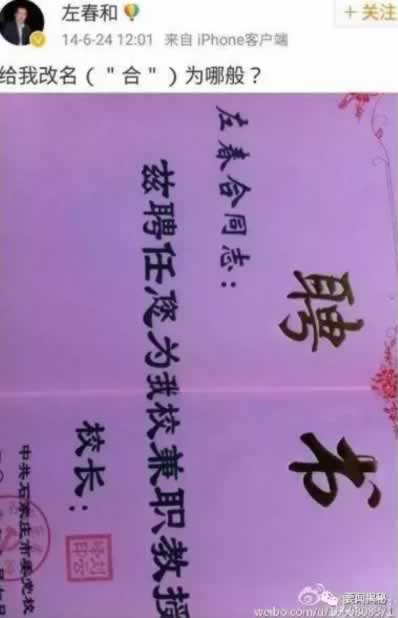 左春和
+ 关注
14-6-24 12:01 来自 iPhone客户端
给我改名（＂合＂）为哪般？
聘书
左春合同志：
兹聘任您为我校兼职教授
校长：
中共石家庄市委党校
要闻揭秘